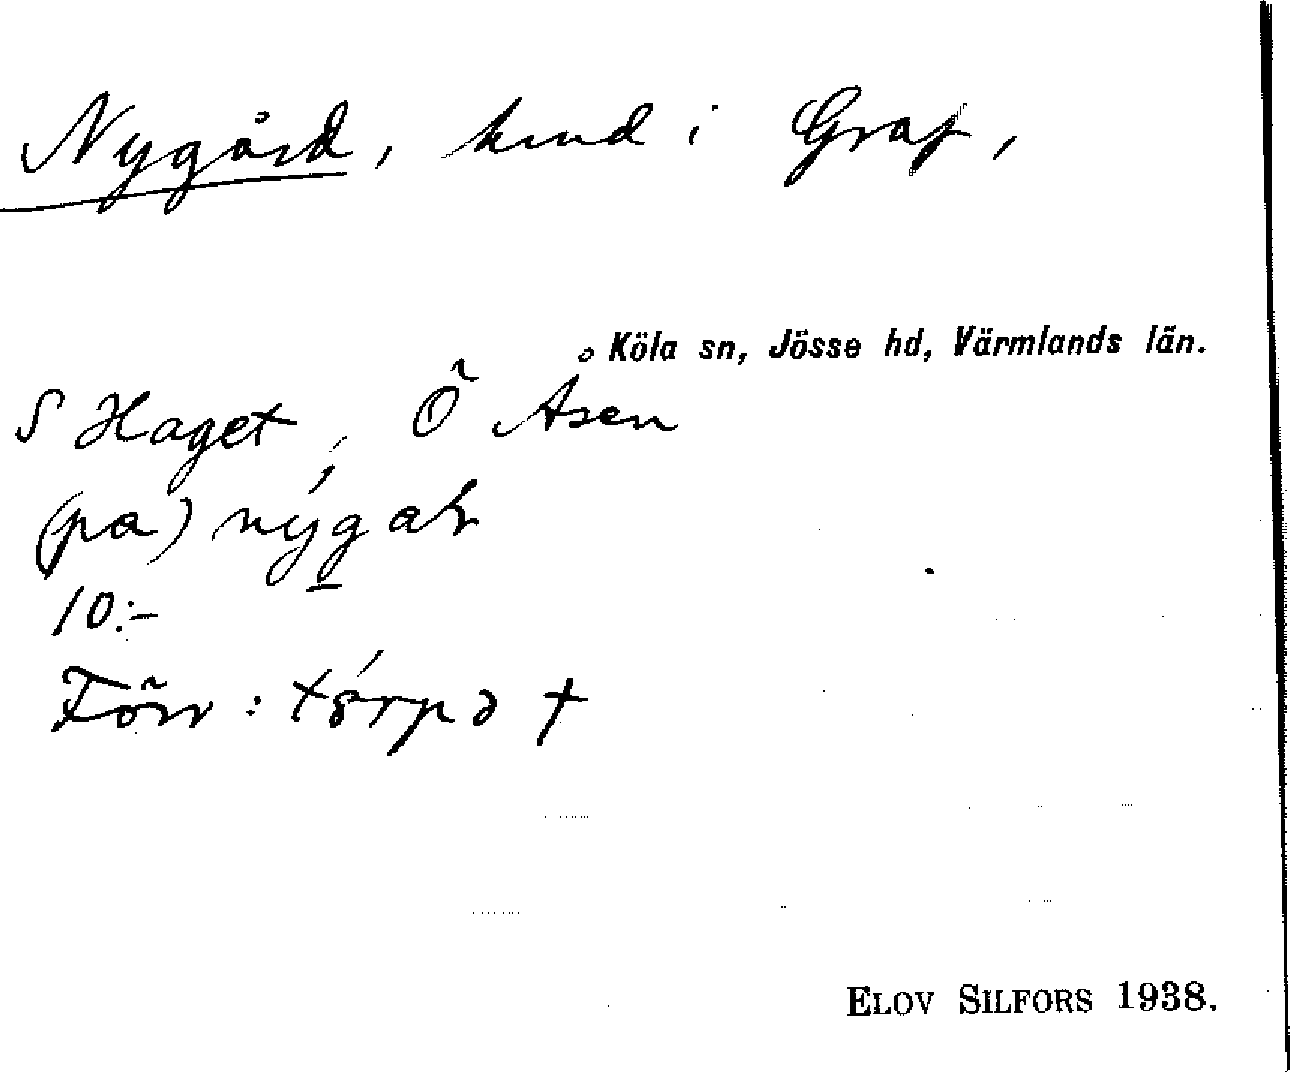 Nygård, hmd i Graf,
Köla sn, Jösse hd, Värmlands län.
S Haget, Ö Åsen
(pa) nýgaḷ
10:-
Förr: tórpə †
ELOV SILFORS 1938.